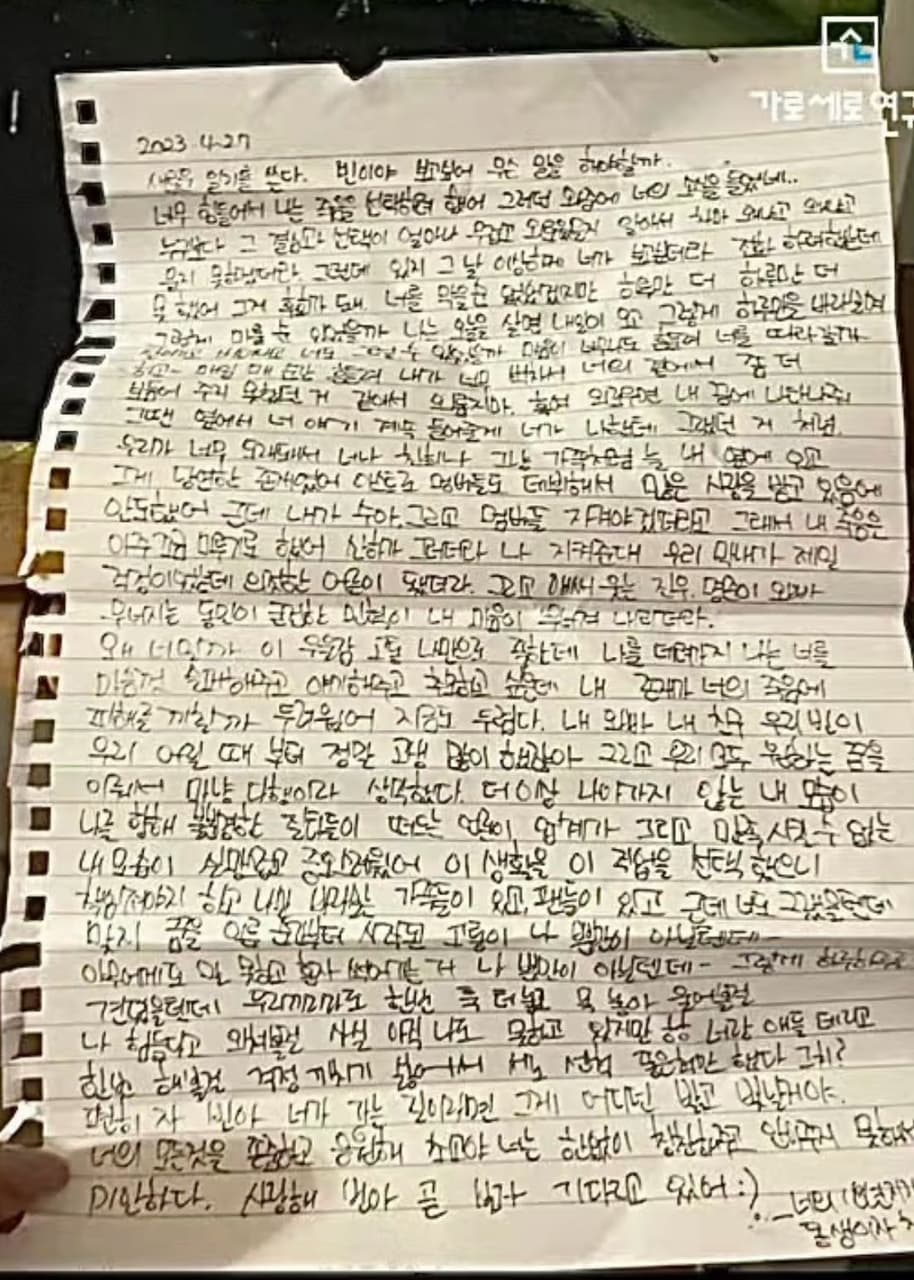 가로세로연구
2023 4.27
일기를 쓴다. 빈이야 보고싶어 무슨 말을 해야할까.
너무 힘들어서 나는 죽음을 선택하려 했어 그러던 와중에 너의 소식을 들었네..
누구보다 그 결심과 선택이 얼마나 무겁고 외로웠을지 알아서
묻지 못하겠더라. 그런데 있지 그 날 이상하게 네가 보고싶더라 전화 하려했는데
못 했어 그게 후회가 돼. 너를 막을 순 없었겠지만 하루만 더 하루만 더
그렇게 미룰 순 있었을까 나는 오늘을 살면 내일이 오고 그렇게 하루만을
너를 따라갈까
매일 매 순간 흔들려 내가 너무 바빠서 너의 곁에서 좀 더
보듬어 주지 못했던 거 같아서 외롭지마. 혹여 외로우면 내 꿈에 나타나줘
그땐 옆에서 너 얘기 계속 들어줄게 네가 나한테 그랬던 거 처럼.
우리가 너무 오래돼서 너나 진희나 그냥 가족처럼 늘 내 옆에 있고
그게 당연한 존재였어 아스트로 멤버들도 데뷔해서 많은 사랑을 받고 있음에
안도했어 근데 내가 수아. 그리고 멤버들 지켜야겠더라고 그래서 내 죽음은
아주 조금 미루기로 했어 산하가 그러더라 나 지켜준대 우리 막내가 제일
걱정이었는데 의젓한 어른이 됐더라. 그리고 애써 웃는 진우. 명준이 오빠
무너지는 동민이 굳건한 민혁이 내 마음이 무너져 내리더라.
왜 너일까 이 우울감 고통 나만으로 족한데 나를 데려가지 나는 너를
마음껏 슬퍼해주고 얘기해주고 추모하고 싶은데 내 존재가 너의 죽음에
피해를 끼칠까 두려웠어 지금도 두렵다. 내 오빠 내 친구 우리 빈이
우리 어릴 때 부터 정말 고생 많이 했잖아 그리고 우리 모두 원하는 꿈을
이뤄서 마냥 다행이라 생각했다. 더 이상 나아가지 않는 내 모습이
나를 향해 불분명한 질타들이 떠도는 연예 업계가 그리고 만족시킬 수 없는
내 모습이 실망스럽고 증오스러웠어 이 생활을 이 직업을 선택 했으니
책임져야지 하고 가족들이 있고, 팬들이 있고 근데 너도 그랬을텐데
맞지 꿈을 이룬 순간부터 시작된 고통이 나 뿐만이 아닐텐데-
아무에게도 말 못하고 혼자 썩어가는 거 나 뿐만이 아닐텐데- 그렇게
견뎠을텐데 우리끼리라도 한번 툭 터놓고 목 놓아 울어볼걸
나 힘들다고 외쳐볼걸 사실 아직 나도 못하고 있지만 한번 너랑 애들 데리고
한번 해볼걸 걱정 끼치기 싫어서
편히 자 빈아 너가 가는 길이라면 그게 어디던 밝고 빛날거야.
너의 모든것을 존중하고 응원해 최고야 너는 한없이 칭찬해주고 안아주지 못해서
미안하다. 사랑해 빈아 곧 보자 기다리고 있어 :)
동생이자